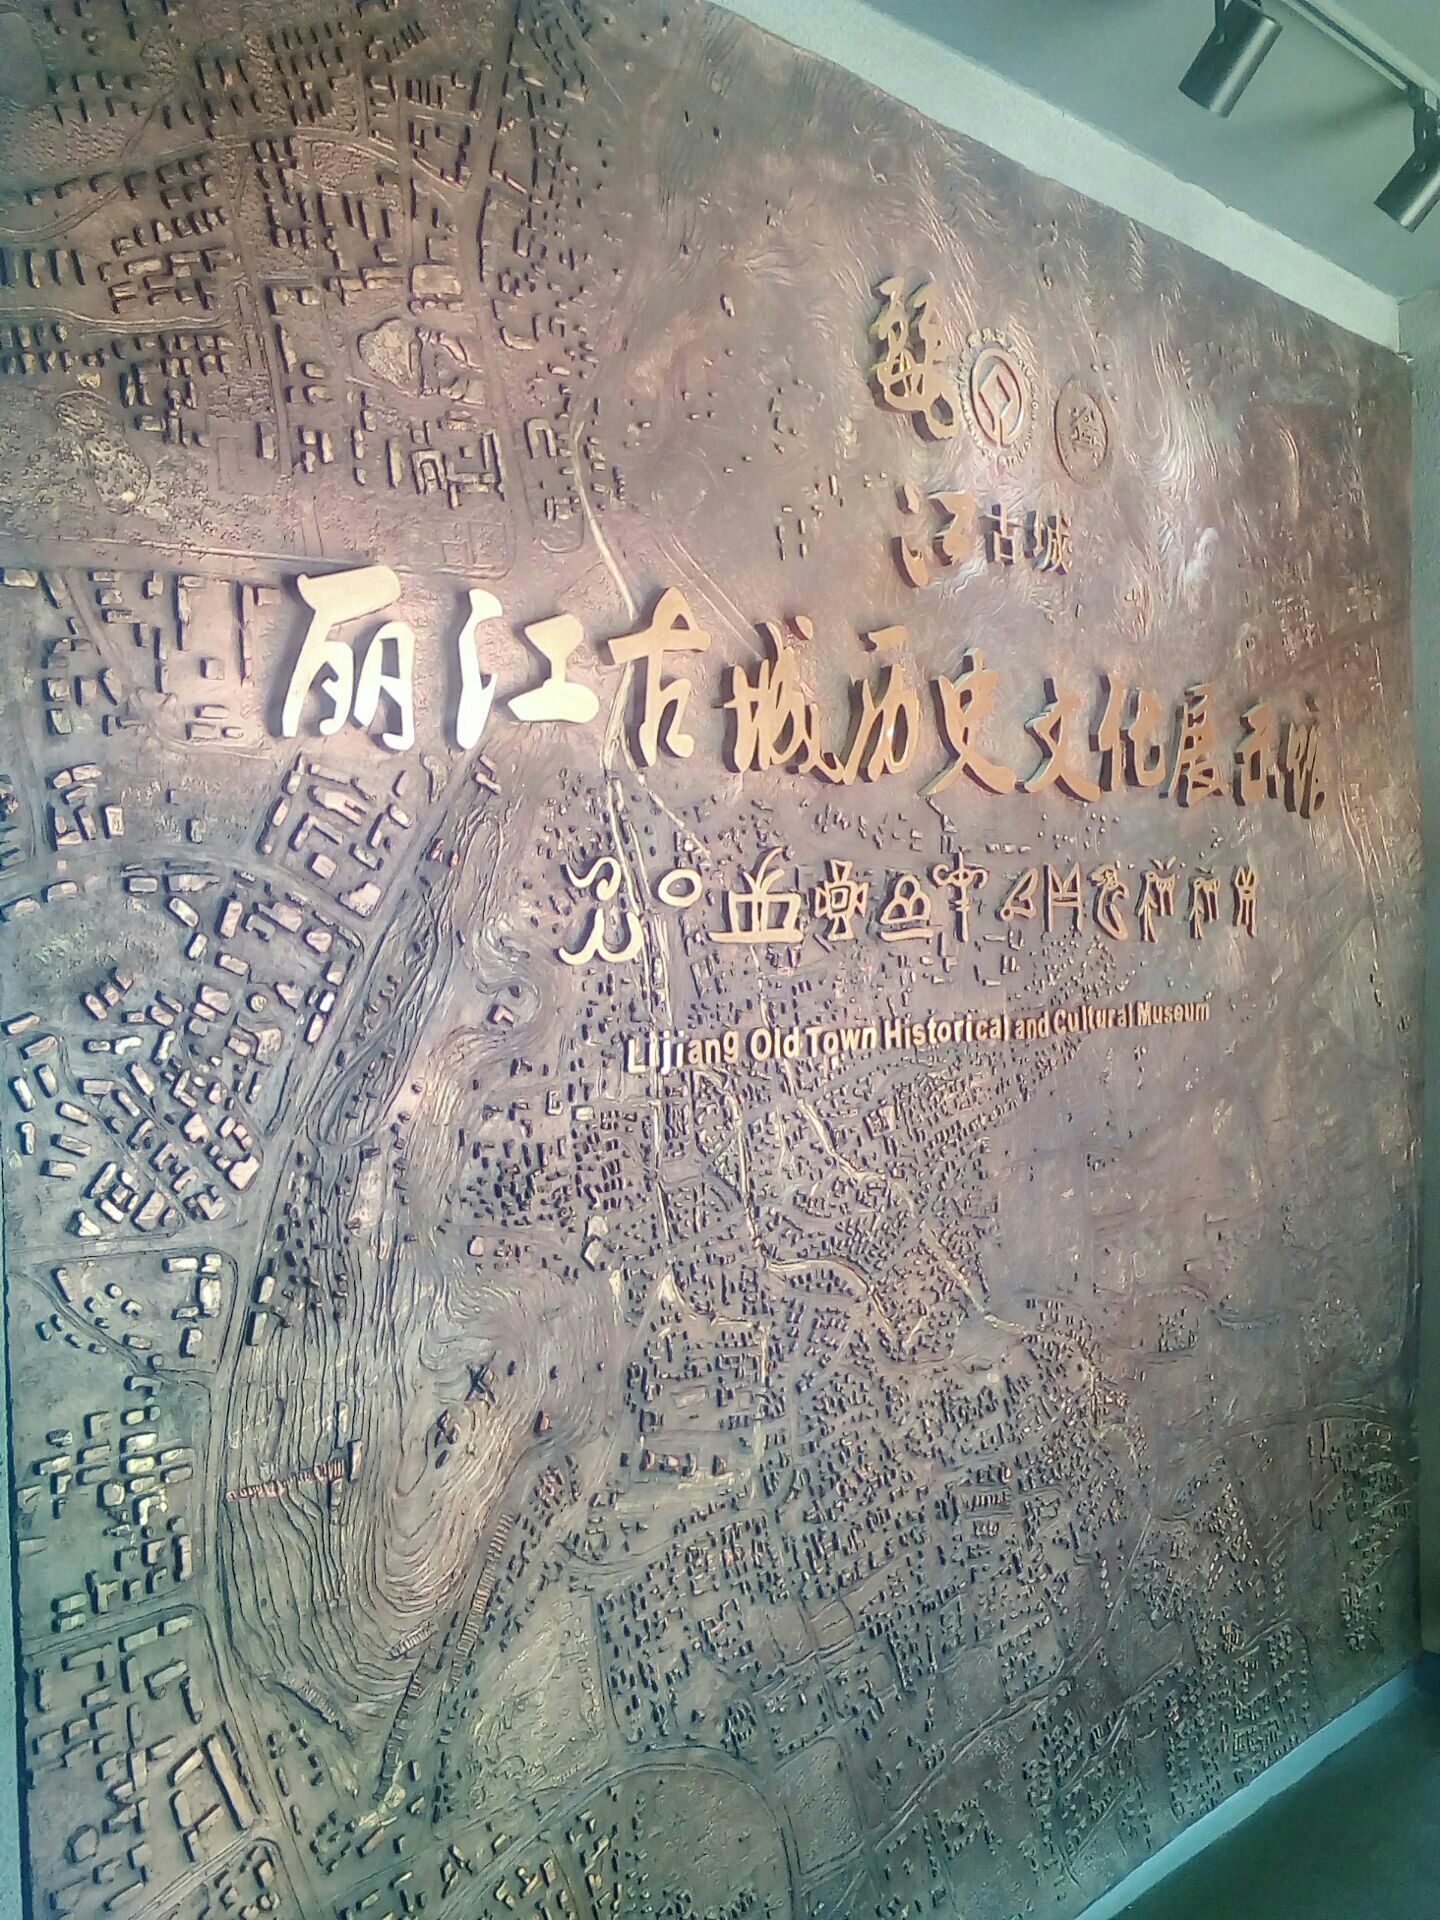 麗
江古城
丽江古城历史文化展示馆
Lijiang Old Town Historical and Cultural Museum